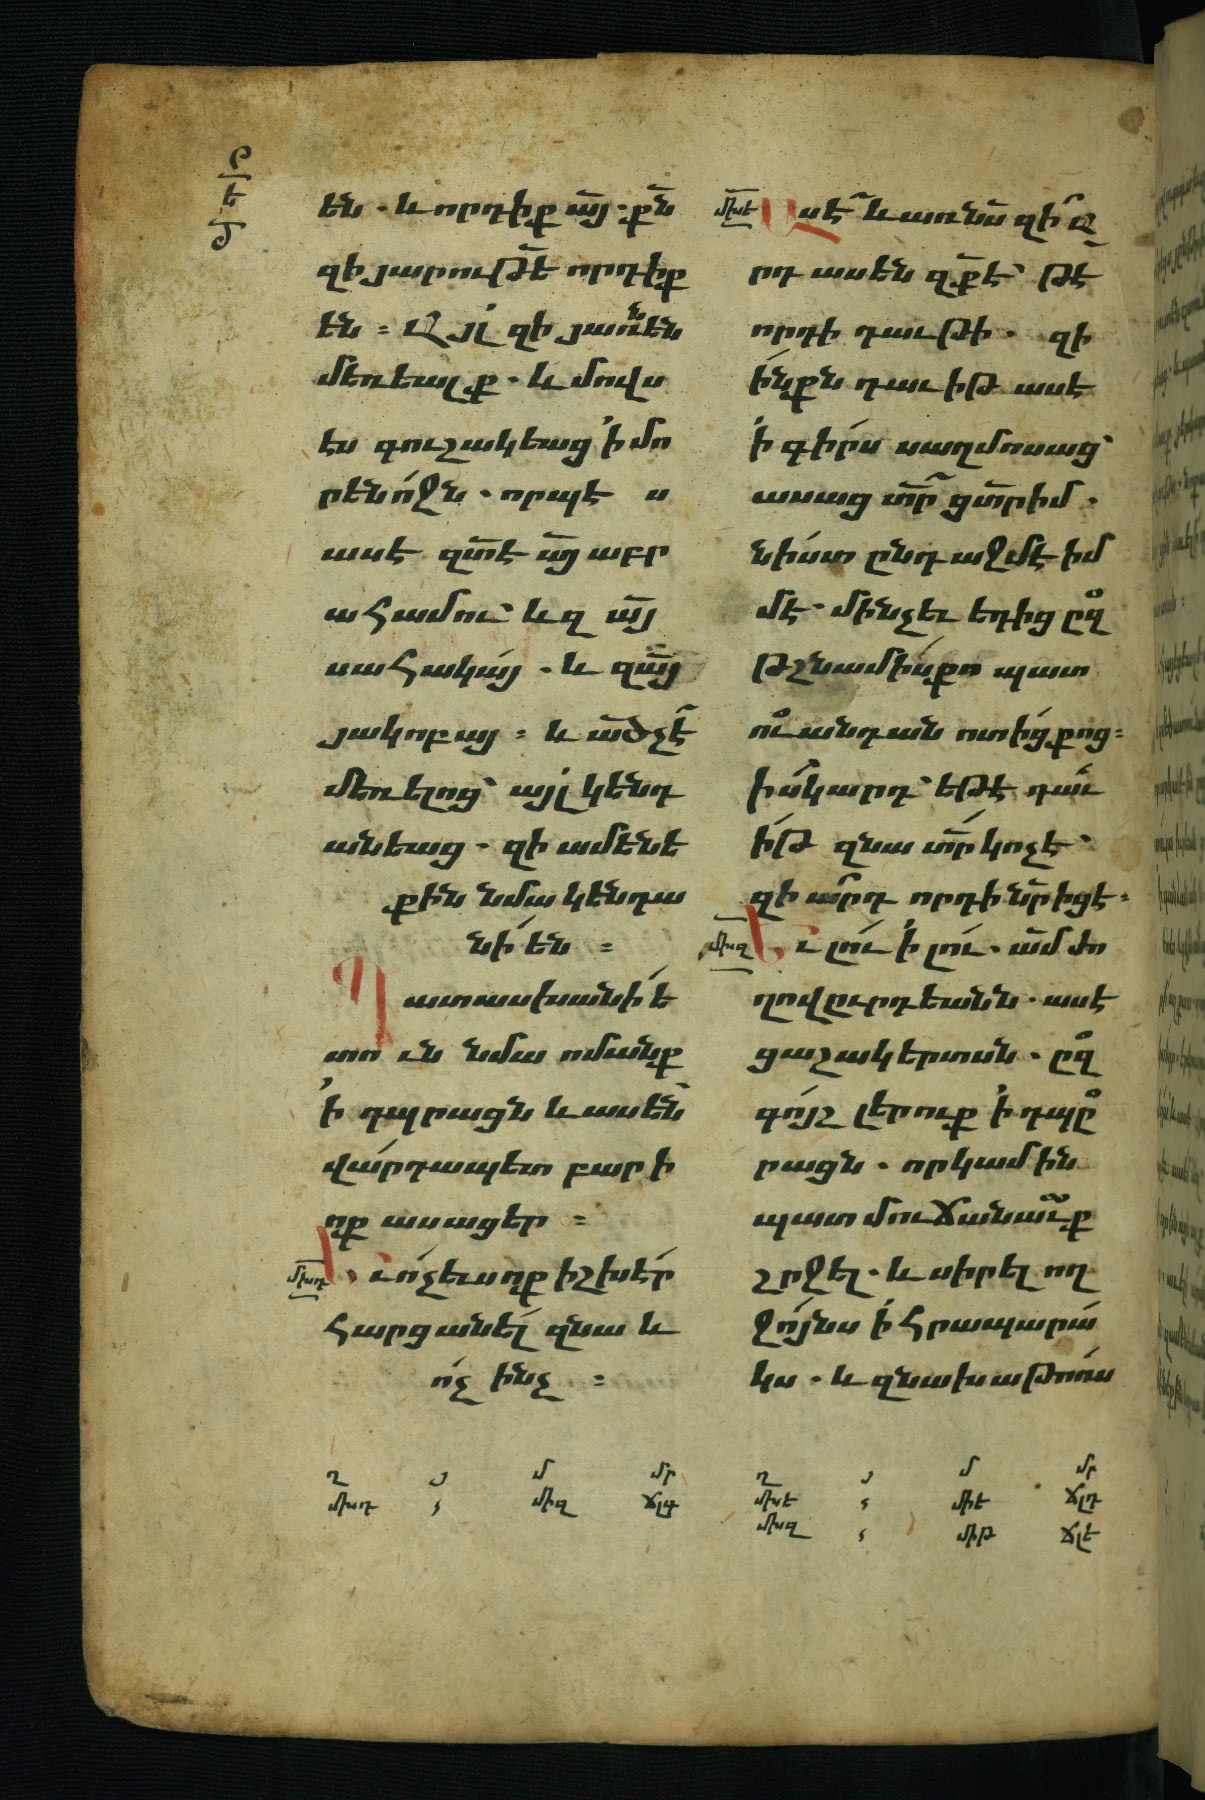 են . և որդիք ա՟յ . քն՟
զի յարութե՟ որդիք
են = Այլ զի յառնեն
մեռեալք . և մովս
էս գուշակեաց ՚ի մո
րենո՛ջն . որպէ ս
ասէ զտ՟է ա՟յ աբր
ահամու՝ և զ ա՟յ
սահակա՛յ . և զա՟յ
յակոբայ = և ա՟ծ չէ
մեռելոց՝ այլ կենդ
անեաց . զի ամենե
քին նմա կենդա
նի՛ են =
Պատասխանի՛ ե
տո ւն նմա ոմանք
՚ի դպրացն և ասեն՝
վա՛րդապետ բար ի
ոք ասացեր =
միսդ Եւ ո՛չ ևս ոք իշխէ՛ր
հարցանել զնա և
ո՛չ ինչ =
միսե Ասէ և առ նս՟ զի՞ ա
րդ ասեն զք՟է՝ թէ
որդի դաւթի . զի
ի՛նքն դաւիթ ասէ
՚ի գի՛րս սաղմոսաց՝
ասաց տ՟ր ցտ՟րիմ .
նի՛ստ ընդ աջմէ իմ
մէ՝ մինչեւ եդից ըզ
թշնամի՛ս քո պատ
ուանդան ոտի՛ց քոց =
ի՛սկ արդ՝ եթէ դաւ
ի՛թ զնա տ՟ր կոչէ՝
զի ա՞րդ որդի նր՟ իցէ =
միսզ Եւ լու՛ ՚ի լու՛ . ամ՟ ժո
ղովըւրդեանն . ասէ
ցաշակերտսն . ըզ
գո՛յշ լերուք ՚ի դպը
րացն . որ կամին
պատմուճանաւք
շրջել . և սիրել ող
ջո՛յնս ՚ի հրապարա՛
կս . և զնախաթոռս
ղ յ մ մր
միսդ ՛ միզ ճլգ
ղ յ մ մր
միսե ՛ միե ճլդ
միսզ ՛ միթ ճլե